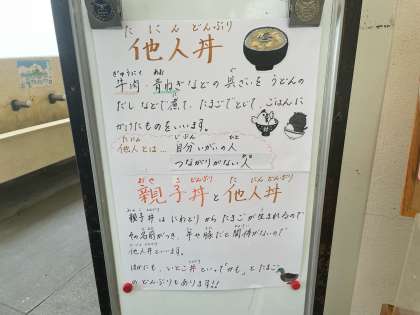 た にん どんぶり
他人丼
ぎゅうにく あお
牛肉・青ねぎなどの具ざいをうどんの
だしなどで煮て、たまごでとじ、ごはんに
かけたものをいいます。
たにん じぶん ひと
他人とは… 自分いがいの人
つながりがない人
おや こ どんぶり た にん どんぶり
親子丼と他人丼
親子丼はにわとりからたまごが生まれるので
その名前がつき、牛や豚だと関係がないので
他人丼といいます。
ほかにも、いとこ丼といって「かも」とたまご
のどんぶりもあります!!